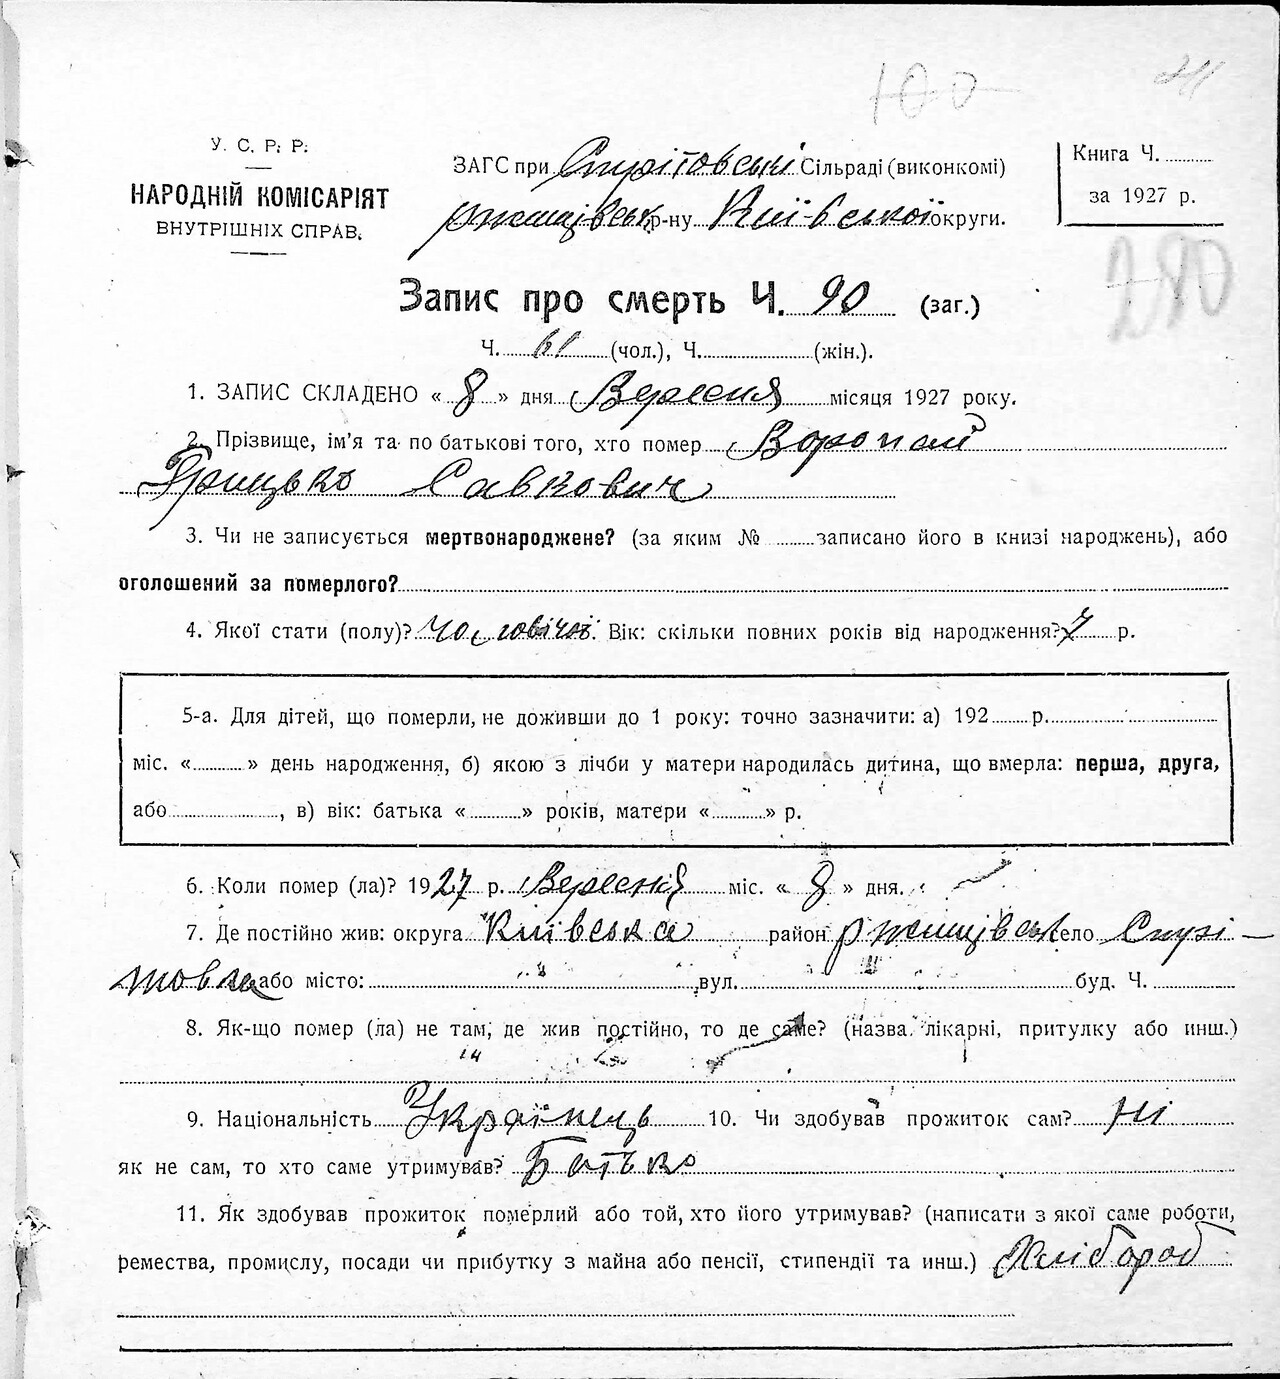 100
У. С. Р. Р.
НАРОДНІЙ КОМІСАРІЯТ
ВНУТРІШНІХ СПРАВ.
ЗАГС при Стрітовські Сільраді (виконкомі)
ржищівськ р-ну Київської округи.
Книга Ч.
за 1927 р.
280
Запис про смерть Ч. 90 (заг.)
Ч. 61 (чол.), Ч. (жін.).
1. ЗАПИС СКЛАДЕНО « 8 » дня Вересня місяця 1927 року.
2. Прізвище, ім'я та по батькові того, хто помер Воропай
Грицько Савкович
3. Чи не записується мертвонароджене? (за яким № записано його в книзі народжень), або
оголошений за померлого?
4. Якої стати (полу)? чоловічої. Вік: скільки повних років від народження? 7 р.
5-а. Для дітей, що померли, не доживши до 1 року: точно зазначити: а) 192 р.
міс. « » день народження, б) якою з лічби у матери народилась дитина, що вмерла: перша, друга,
або , в) вік: батька « » років, матери « » р.
6. Коли помер (ла)? 1927 р. Вересня міс. « 8 » дня.
7. Де постійно жив: округа Київська район ржищівськ село Стрі-
товка або місто: " вул. " буд. Ч.
8. Як-що помер (ла) не там, де жив постійно, то де саме? (назва лікарні, притулку або инш.)
9. Національність Українець 10. Чи здобував прожиток сам? Ні
як не сам, то хто саме утримував? Батько
11. Як здобував прожиток померлий або той, хто його утримував? (написати з якої саме роботи,
ремества, промислу, посади чи прибутку з майна або пенсії, стипендії та инш.) Хлібороб